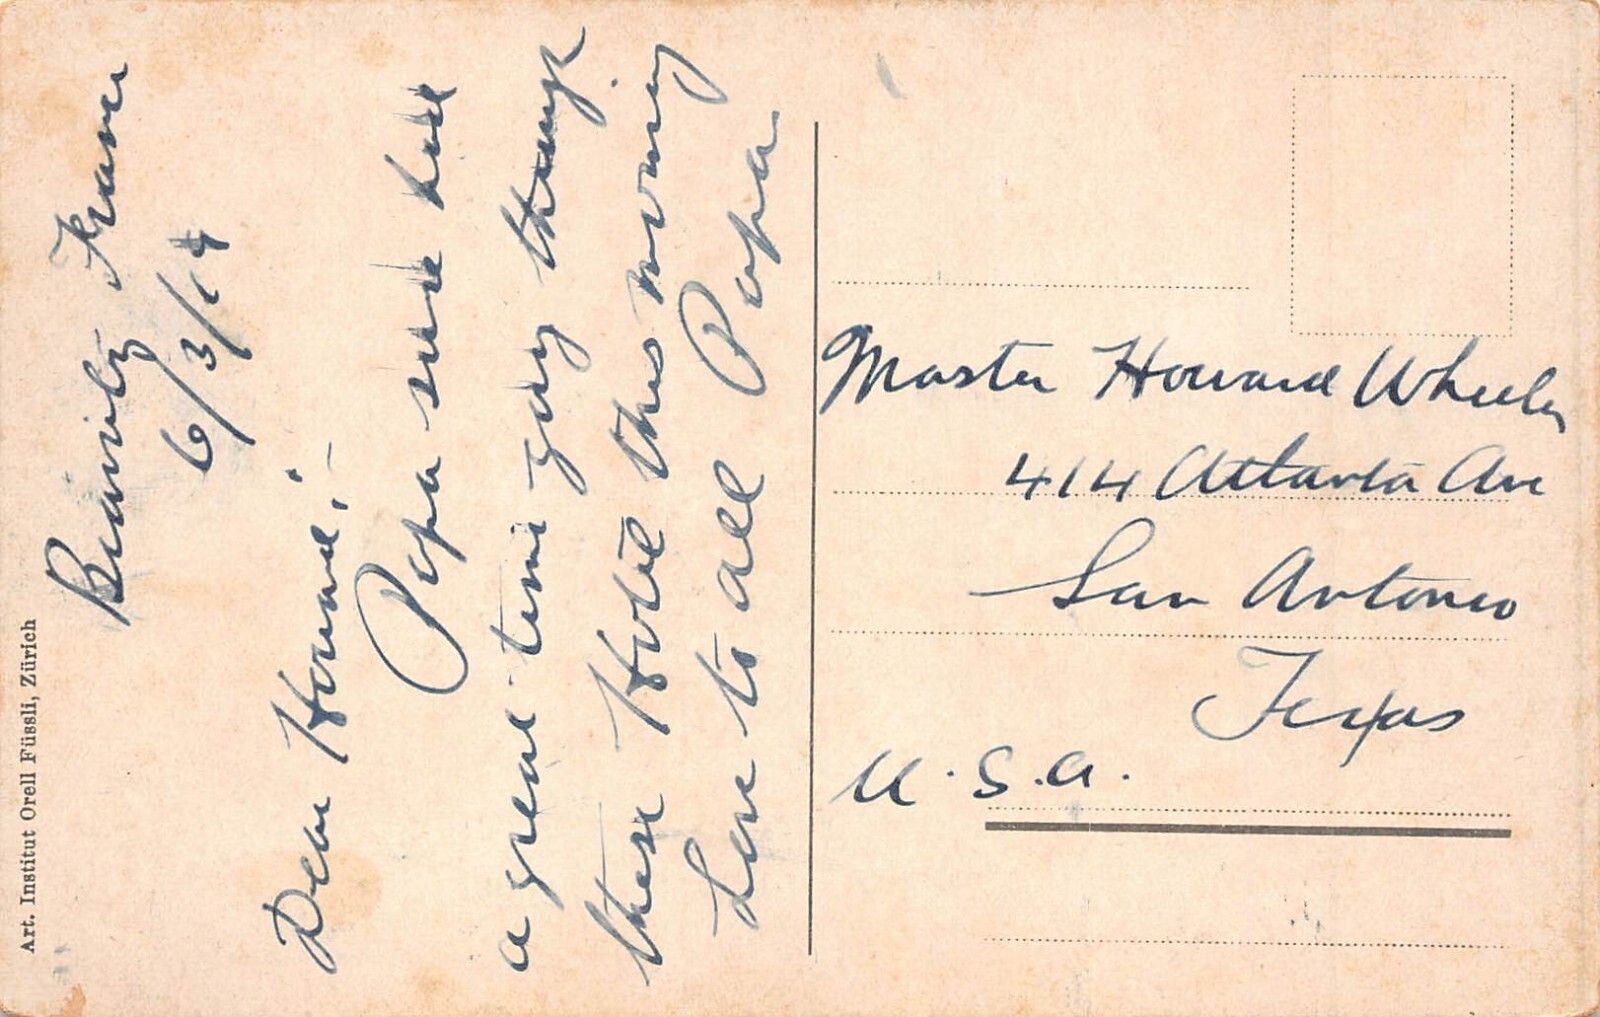 France
6/3/14
Dear Howard:-
Papa sure had
a great time going through
these Hotel this morning
Love to all Papa
Master Howard Wheeler
414 Atlanta Ave
San Antonio
Texas
U.S.A.
Art. Institut Orell Füssli, Zürich